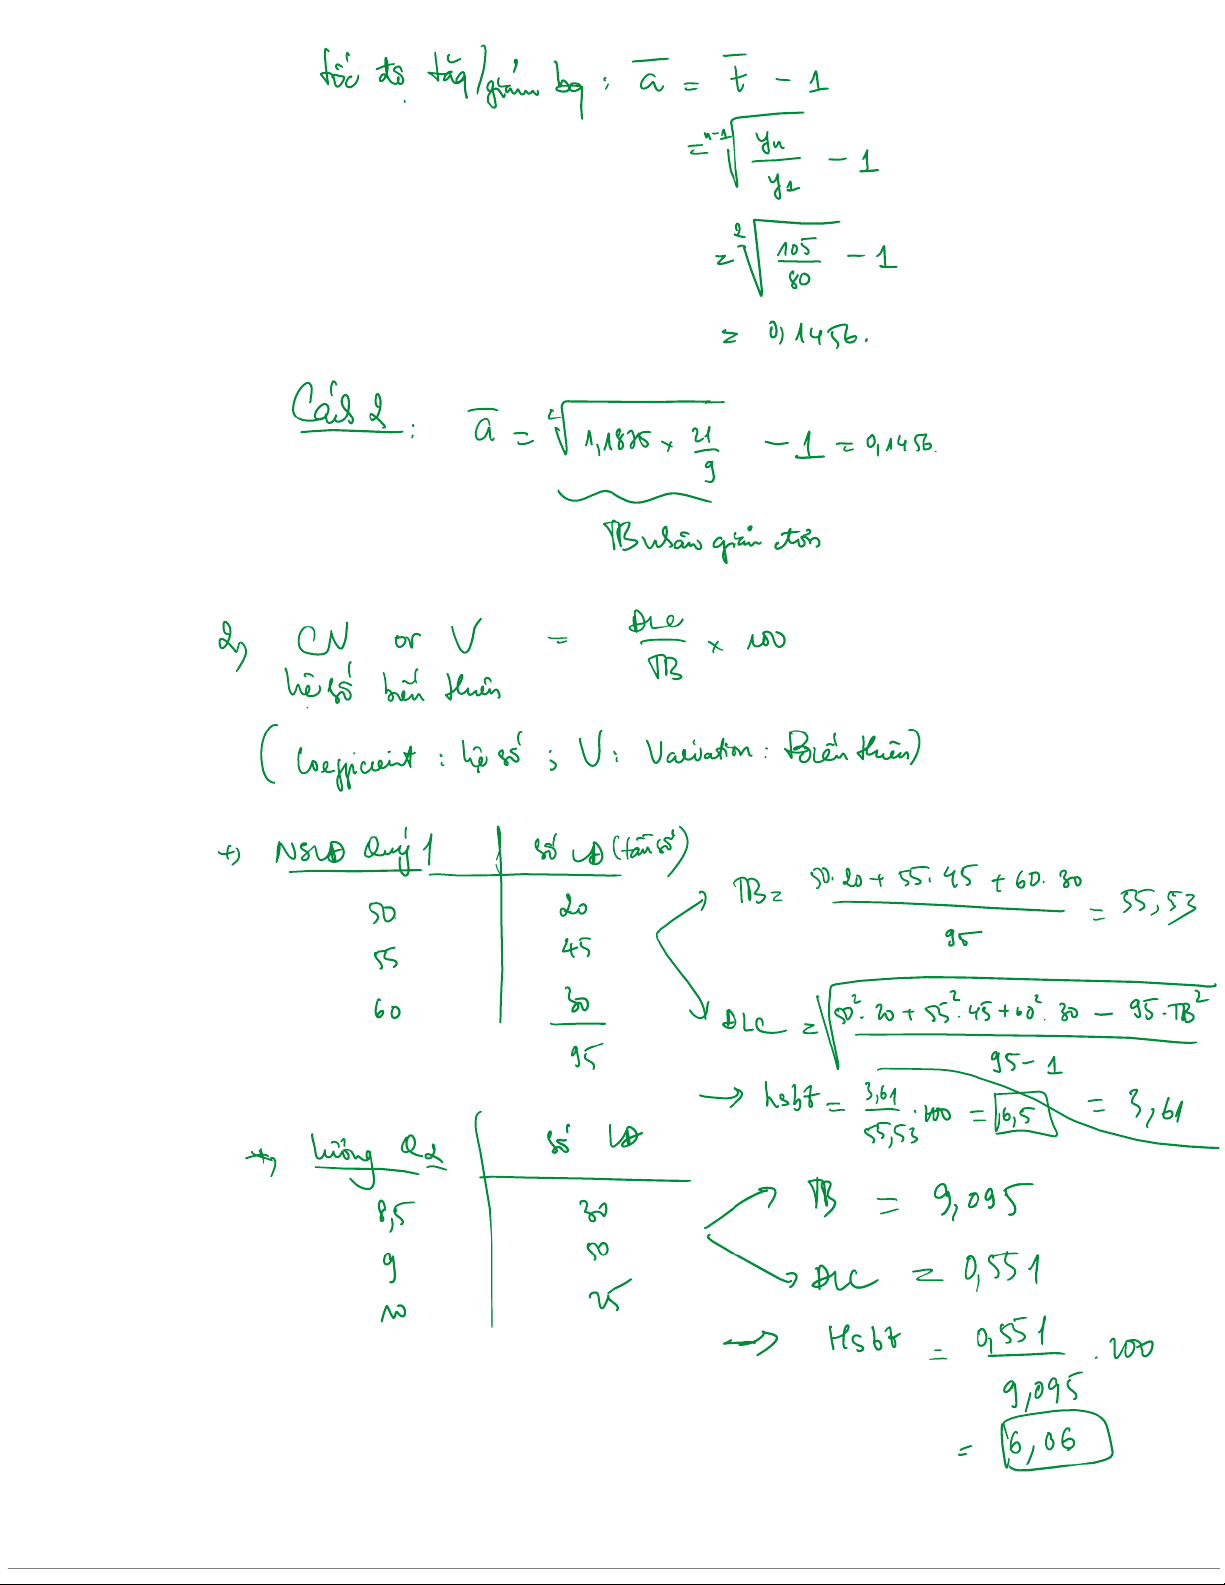 tốc độ tăg/giảm bq : a̅ = t̅ - 1
= ⁿ⁻¹√(yn/y1) - 1
= ²√(105/80) - 1
= 0,1456.
Cách 2 : a̅ = ²√(1,1875 × 21/19) - 1 = 0,1456.
TB nhân giản đơn
2, CN or V = ĐLC/TB × 100
hệ số biến thiên
(Coefficient : hệ số ; V : Variation : Biến thiên)
+) NSLĐ Quý 1 | số LĐ (tần số)
50 | 20
55 | 45
60 | 30
95
TB = (50.20 + 55.45 + 60.30)/95 = 55,53
ĐLC = √((50².20 + 55².45 + 60².30 - 95.TB²)/(95-1)) = 3,61
→ hsbt = 3,61/55,53 .100 = 6,5
+) lương Q2 | số LĐ
8,5 | 30
9 | 50
10 | 25
TB = 9,095
ĐLC = 0,551
→ Hsbt = 0,551/9,095 . 100
= 6,06